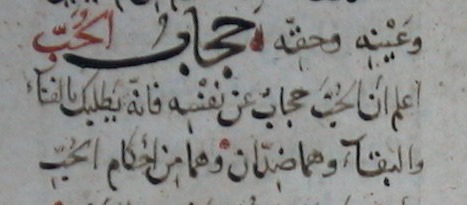 وعينه وحقه حجاب الحب
اعلم أن الحب حجاب عن نفسه فانه يطلبك بالفناء
والبقاء وهما ضدان وهما من أحكام الحب